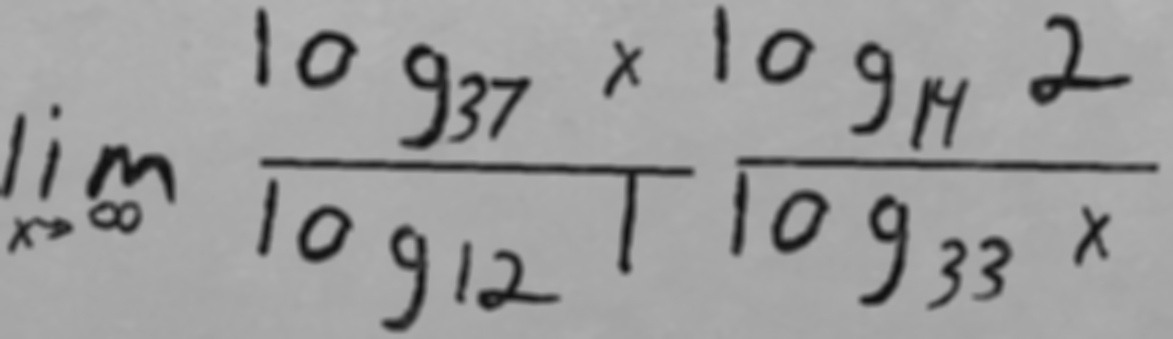 lim x→∞ log₃₇ x / log₁₂ 1 log₁₄ 2 / log₃₃ x